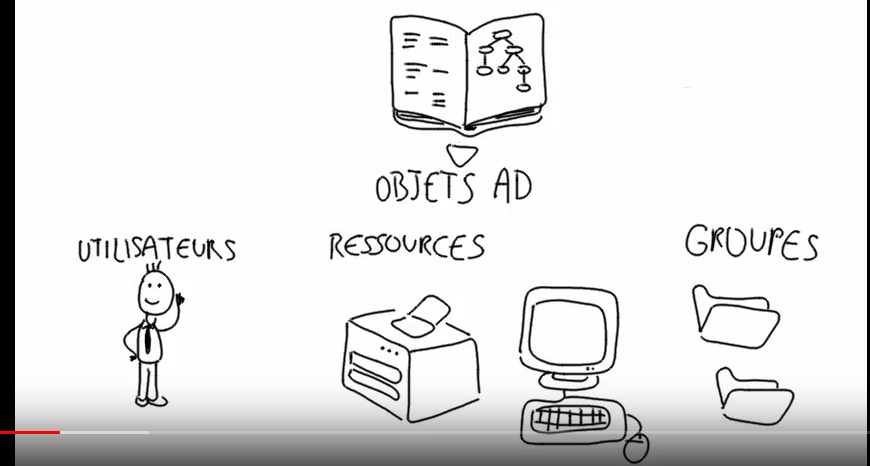 OBJETS AD
UTILISATEURS
RESSOURCES
GROUPES